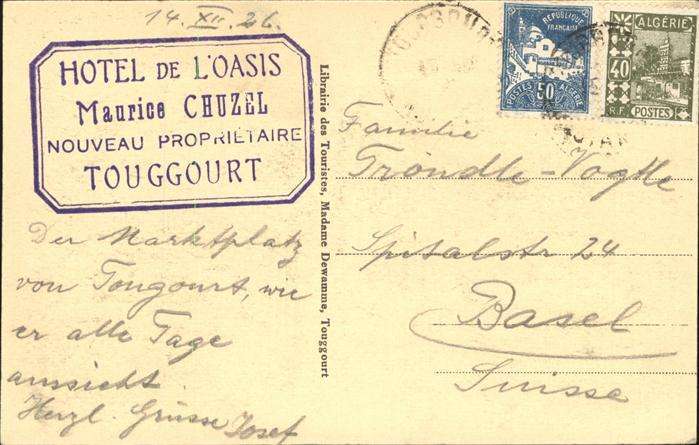 14. XII. 26.
HOTEL DE L'OASIS
Maurice CHUZEL
NOUVEAU PROPRIÉTAIRE
TOUGGOURT
Der Marktplatz
von Tougourt, wie
er alle Tage
aussieht.
Herzl. Grüsse Josef
Librairie des Touristes, Madame Dewamme, Touggourt
REPUBLIQUE
FRANÇAISE
50
POSTES ALGERIE
ALGÉRIE
40
R.F. POSTES
Familie
Tröndle-Vogtle
Spitalstr 24
Basel
Suisse